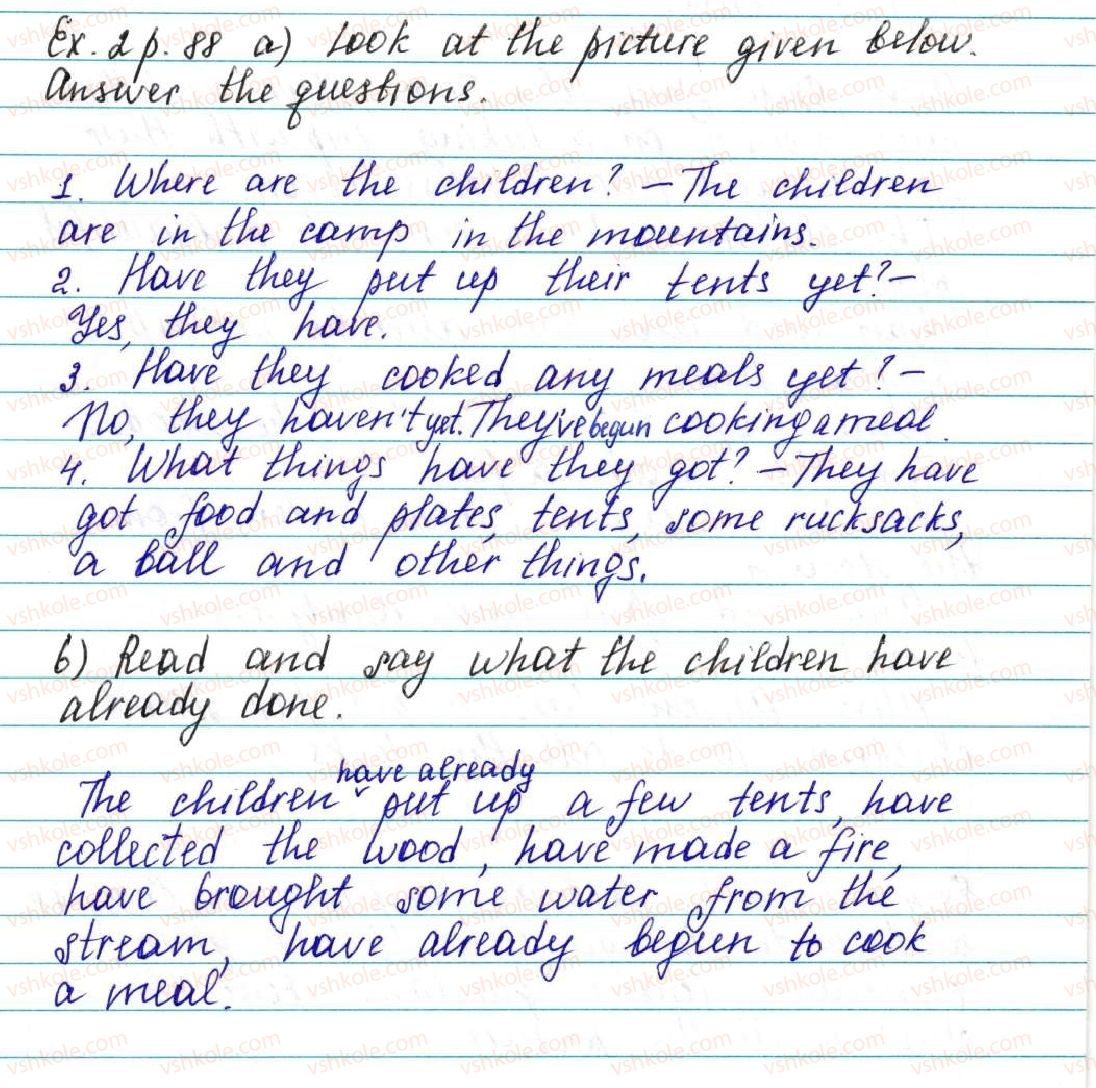 Ex. 2 p. 88 a) Look at the picture given below.
Answer the questions.
1. Where are the children? – The children
are in the camp in the mountains.
2. Have they put up their tents yet? –
Yes, they have.
3. Have they cooked any meals yet? –
No, they haven't yet. They've begun cooking a meal.
4. What things have they got? – They have
got food and plates, tents, some rucksacks,
a ball and other things.
b) Read and say what the children have
already done.
have already
The children ˇ put up a few tents, have
collected the wood, have made a fire,
have brought some water from the
stream, have already begun to cook
a meal.
vshkole.com